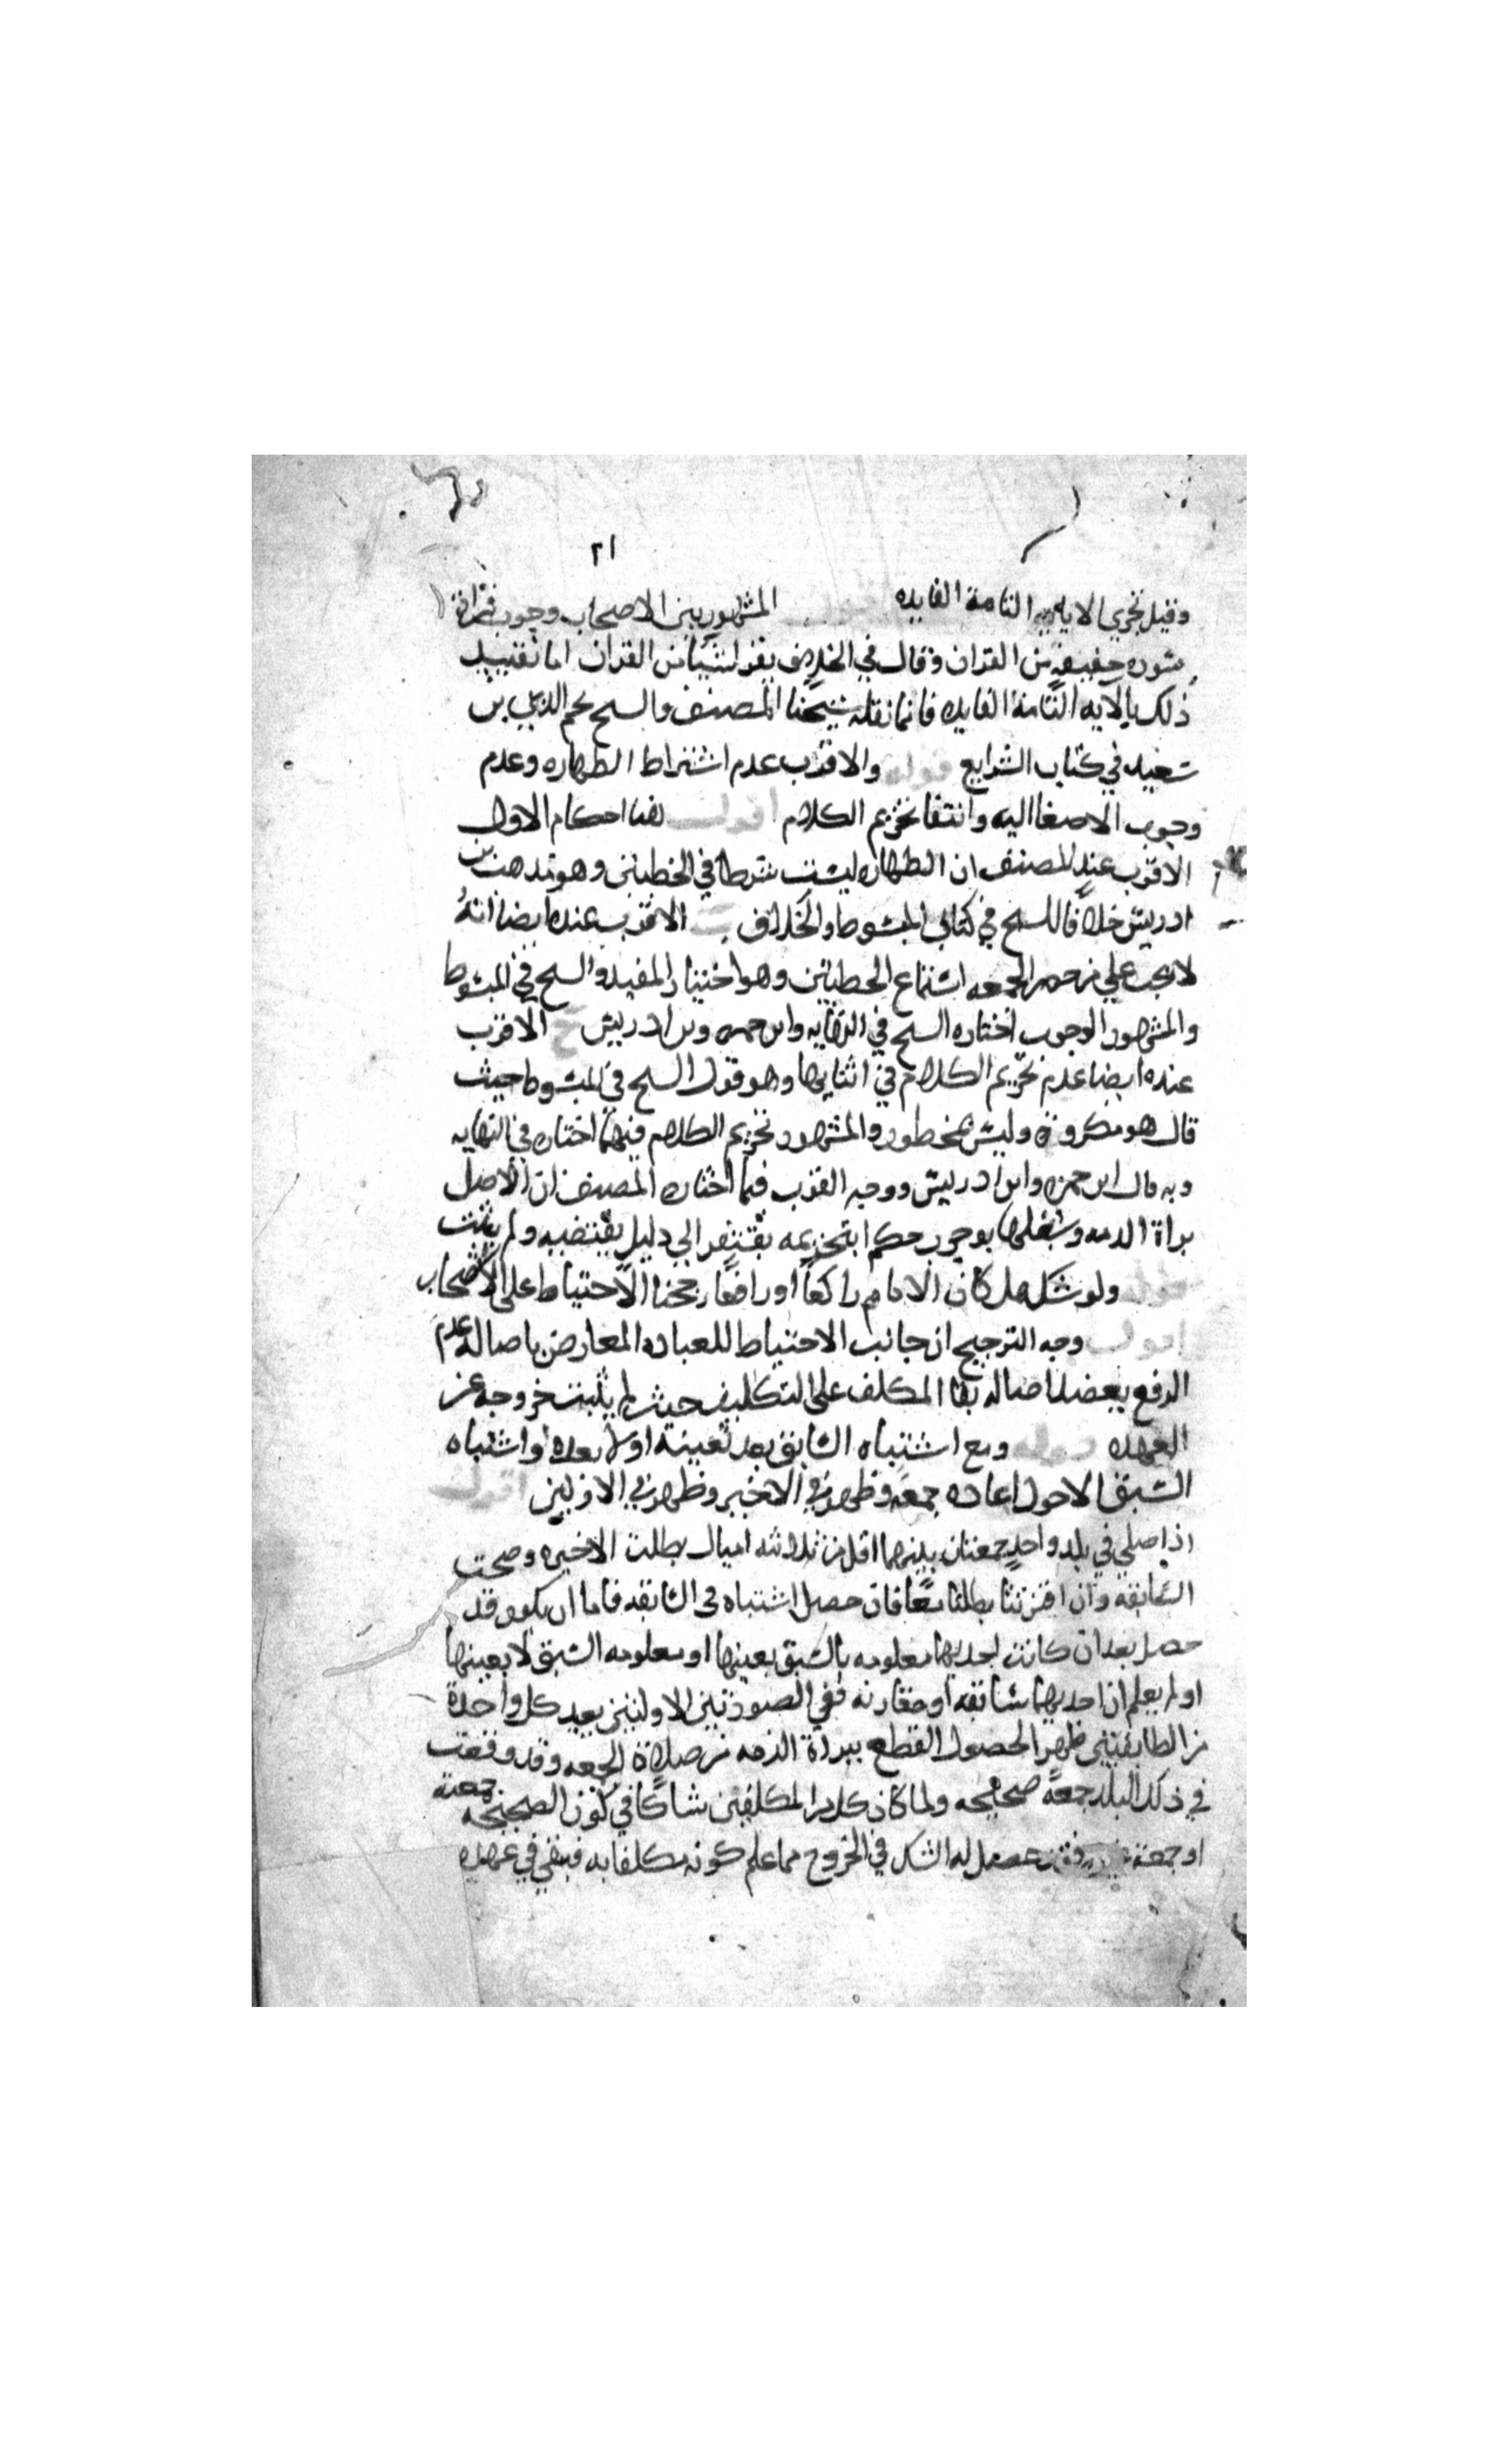 ٢١
وقيل تجزي الاية التامة الفايده اقول المشهور بين الاصحاب وجوب قراة
سوره خفيفه من القران وقال في الخلاف يقرا شيئا من القران اما تقييد
ذلك بالايه التامة الفايده فانما نقله شيخنا المصنف والسح نجم الدين بن
سعيد في كتاب الشرايع قوله والاقرب عدم اشتراط الطهاره وعدم
وجوب الاصغا اليه وانتفا تحريم الكلام اقول لهنا احكام الاول
الاقرب عند المصنف ان الطهاره ليست شرطا في الخطبتين وهو مذهب بن
ادريس خلافا للسح في كتابي المبسوط والخلاف ب الاقرب عنده ايضا انه
لا يجب على من حضر الجمعه استماع الخطبتين وهو اختيار المفيد والسح في المبسوط
والمشهور الوجوب اختاره السح في النهايه وابن حمزه وبن ادريس ج الاقرب
عنده ايضا عدم تحريم الكلام في اثنايها وهو قول السح في المبسوط حيث
قال هو مكروه وليس بمحظور والمشهور تحريم الكلام فيهما اختاره في النهايه
وبه قال ابن حمزه وابن ادريس ووجه القرب فيما اختاره المصنف ان الاصل
براة الذمه وشغلها بوجوب حكم او تحريمه يفتقر الى دليل يقتضيه ولم يثبت
قوله ولو شك هل كان الامام راكعا او رافعا رجحنا الاحتياط على الاصحاب
اقول وجه الترجيح ان جانب الاحتياط للعباده المعارض باصالة عدم
الرفع يعضد باصاله بقا المكلف على التكليف حيث لم يثبت خروجه عن
العهده قوله ومع اشتباه السابق بعد تعينه او لا بعده او اشتباه
السبق الاجود اعاده جمعه وظهر في الاخير وظهر في الاولين اقول
اذا صلي في بلد واحد جمعتان بينهما اقل من ثلاثه اميال بطلت الاخيره وصحت
السابقه وان اقترنتا بطلتا معا فان حصل اشتباه في السابقه فاما ان يكون قد
حصل بعد ان كانت احديهما معلومه بالسبق بعينها او معلومه السبق لا بعينها
او لم يعلم ان احديهما سابقه او مقارنه ففي الصورتين الاولتين يعيد كل واحدة
من الطايفتين ظهرا لحصول القطع ببراة الذمه من صلاة الجمعه وقد وقعت
في ذلك البلد جمعة صحيحه ولما كان كل من المكلفين شاكا في كون الصحيحه جمعته
او جمعة غيره فقد حصل له الشك في الخروج مما علم كونه مكلفا به فبقي في عهده